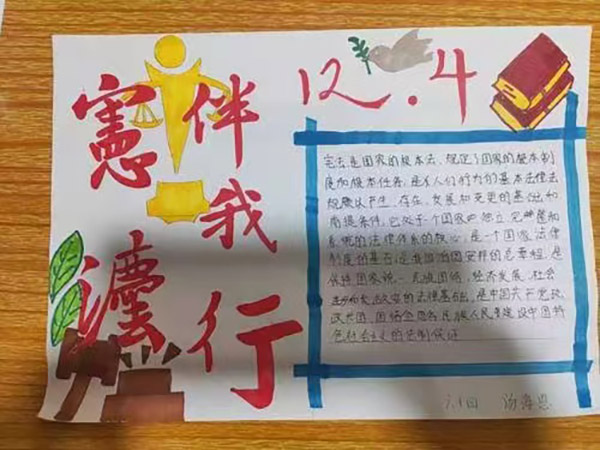 憲灋
伴我行
12.4
宪法是国家的根本法，规定了国家的根本制
度和根本任务，是人们行为的基本法律法
规赖以产生、存在、发展和变更的基础和
前提条件。它处于一个国家的独立、完整和
系统的法律体系的核心，是一个国家法律
制度的基石。是治国安邦的总章程，是
保持国家统一、民族团结、经济发展、社会
进步和长治久安的法律基础，是中国共产党执
政兴国、团结全国各族人民建设中国特
色社会主义的法制保证